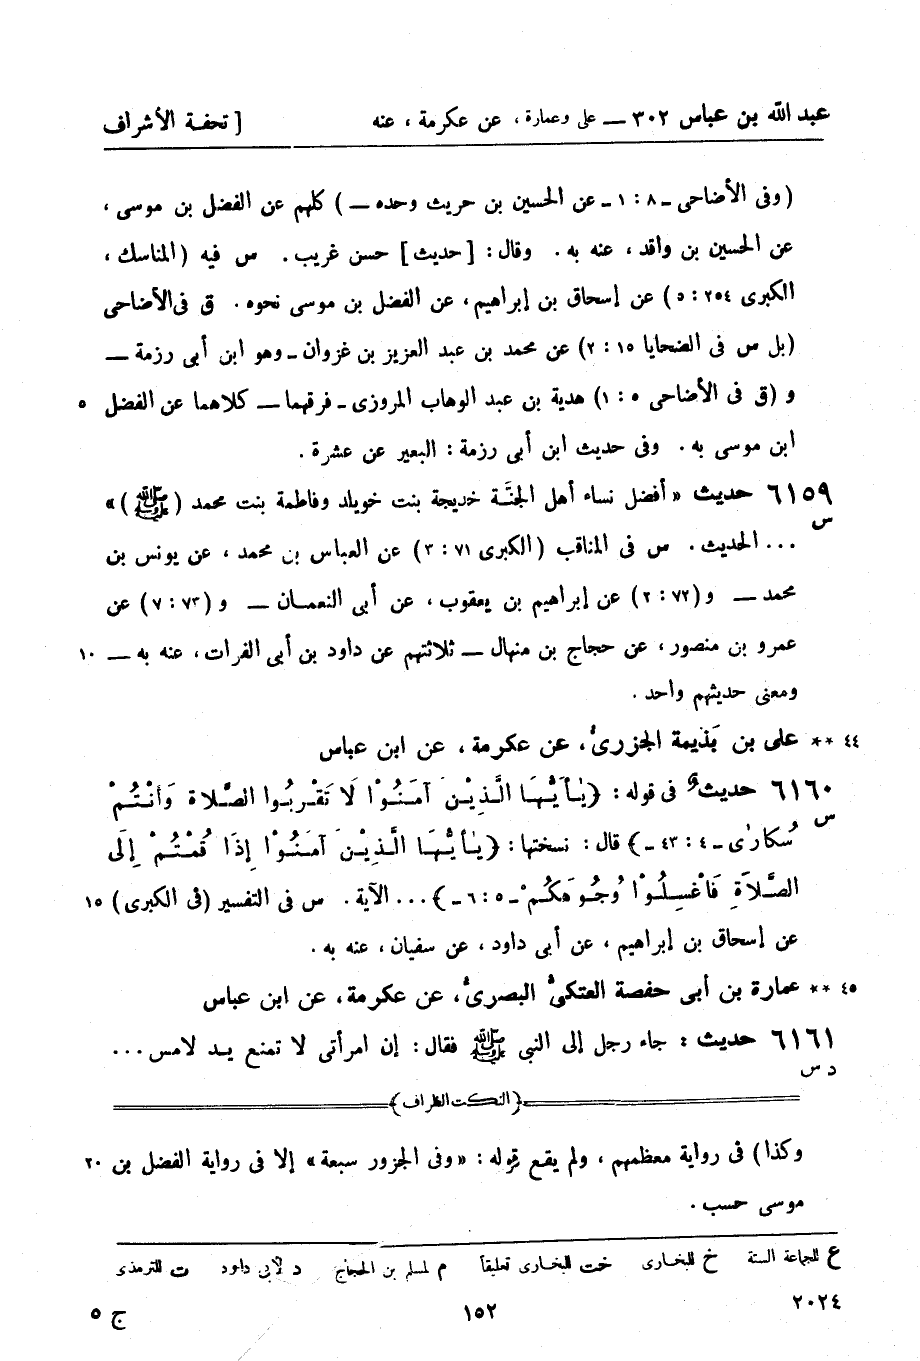 عبد الله بن عباس ٣٠٢ — على وعمارة ، عن عكرمة ، عنه [ تحفة الأشراف
( وفى الأضاحى – ٨ : ١ – عن الحسين بن حريث وحده — ) كلهم عن الفضل بن موسى ،
عن الحسين بن واقد ، عنه به . وقال : [ حديث ] حسن غريب . س فيه ( المناسك ،
الكبرى ٢٥٤ : ٥ ) عن إسحاق بن إبراهيم ، عن الفضل بن موسى نحوه . ق فى الأضاحى
( بل س فى الضحايا ١٥ : ٢ ) عن محمد بن عبد العزيز بن غزوان – وهو ابن أبى رزمة —
و ( ق فى الأضاحى ٥ : ١ ) هدية بن عبد الوهاب المروزى – فرقهما — كلاهما عن الفضل ٥
ابن موسى به . وفى حديث ابن أبى رزمة : البعير عن عشرة .
٦١٥٩ حديث « أفضل نساء أهل الجنَّة خديجة بنت خويلد وفاطمة بنت محمد ( ﷺ ) »
س
... الحديث . س فى المناقب ( الكبرى ٧١ : ٣ ) عن العباس بن محمد ، عن يونس بن
محمد — و ( ٧٢ : ٢ ) عن إبراهيم بن يعقوب ، عن أبى النعمـان — و ( ٧٣ : ٧ ) عن
عمرو بن منصور ، عن حجاج بن منهال — ثلاثتهم عن داود بن أبى الفرات ، عنه به — ١٠
ومعنى حديثهم واحد .
٤٤ ** على بن بَذيمة الجزرىُّ ، عن عكرمة ، عن ابن عباس
٦١٦٠ حديث فى قوله : ﴿ يٰـأَيُّهَا الَّذِيْنَ آمَنُوْا لَا تَقْرِبُوا الصَّلاة وَأَنْتُمْ
س
سُكَارٰى – ٤ : ٤٣ – ﴾ قال : نسختها : ﴿ يٰـأَيُّهَا الَّذِيْنَ آمَنُوْا إِذَا قُمْتُمْ إِلَى
الصَّلاَةِ فَاغْسِلُوْا وُجُوهَكُمْ – ٥ : ٦ – ﴾ ... الآية . س فى التفسير ( فى الكبرى ) ١٥
عن إسحاق بن إبراهيم ، عن أبى داود ، عن سفيان ، عنه به .
٤٥ ** عمارة بن أبى حفصة العتكىُّ البصرىُّ ، عن عكرمة ، عن ابن عباس
٦١٦١ حديث : جاء رجل إلى النبى ﷺ فقال : إن امرأتى لا تمنع يـد لامس ...
د س
﴿ النكت الظراف ﴾
وكذا ) فى رواية معظمهم ، ولم يقع قوله : « وفى الجزور سبعة » إلا فى رواية الفضل بن ٢٠
موسى حسب .
ع للجماعة الستة خ للبخارى خت للبخارى تعليقاً م لمسلم بن الحجاج د لأبى داود ت للترمذى
٢٠٢٤ ١٥٢ ج ٥